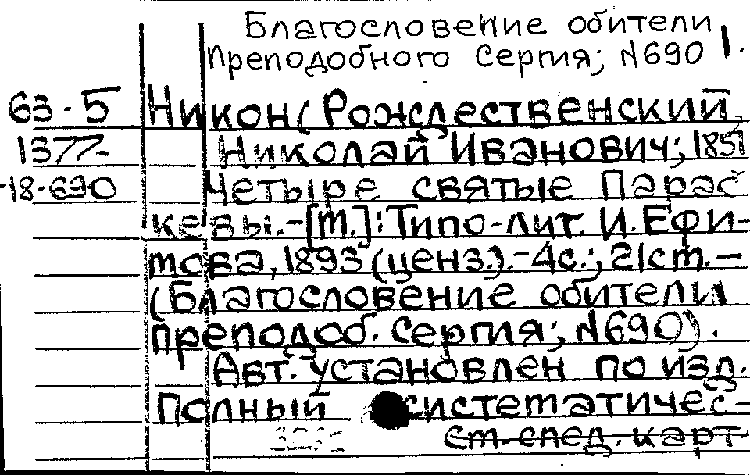 Благословение обители
Преподобного Сергия; №690
63-5 Никон (Рождественский,
1377- Николай Иванович; 1851
-18-690 Четыре святые Парас
кевы.-[М.]: Типо-лит. И. Ефи-
мова, 1893 (ценз.).-4с.; 21см.-
(Благословение обители
преподоб. Сергия; №690).
Авт. установлен по изд.
Полный систематичес-
См. след. карт